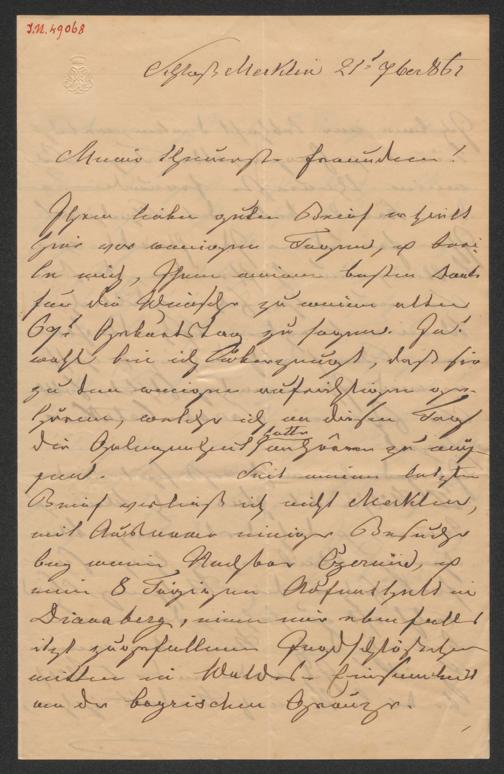 J.N. 49068
Schloß Merklin 21t 7ber 861
Meine theuerste Freundin!
Ihren lieben guten Brief erhielt
hier vor wenigen Tagen, u. beei-
le mich, Ihnen meinen besten Dank
für die Wünsche zu meinem alten
69t Geburtstag zu sagen. Ja!
wohl bin ich überzeugt, daß sie
zu den wenigen aufrichtigen ge-
hören, welche ich an diesem Tage
die Gelegenheit hatte anhören zu müs-
sen. Seit meinem letzten
Brief verließ ich nicht Merklin,
mit Ausname einiger Besuche
bey meim Nachbar Czernin, u.
mein 8 Tägigen Aufenthalt in
Dianaberg, einem mir ebenfalls
itzt zugefallenen Jagdschlößchen
mitten in Waldes-Einsamkeit
an der bayrischen Gränze.